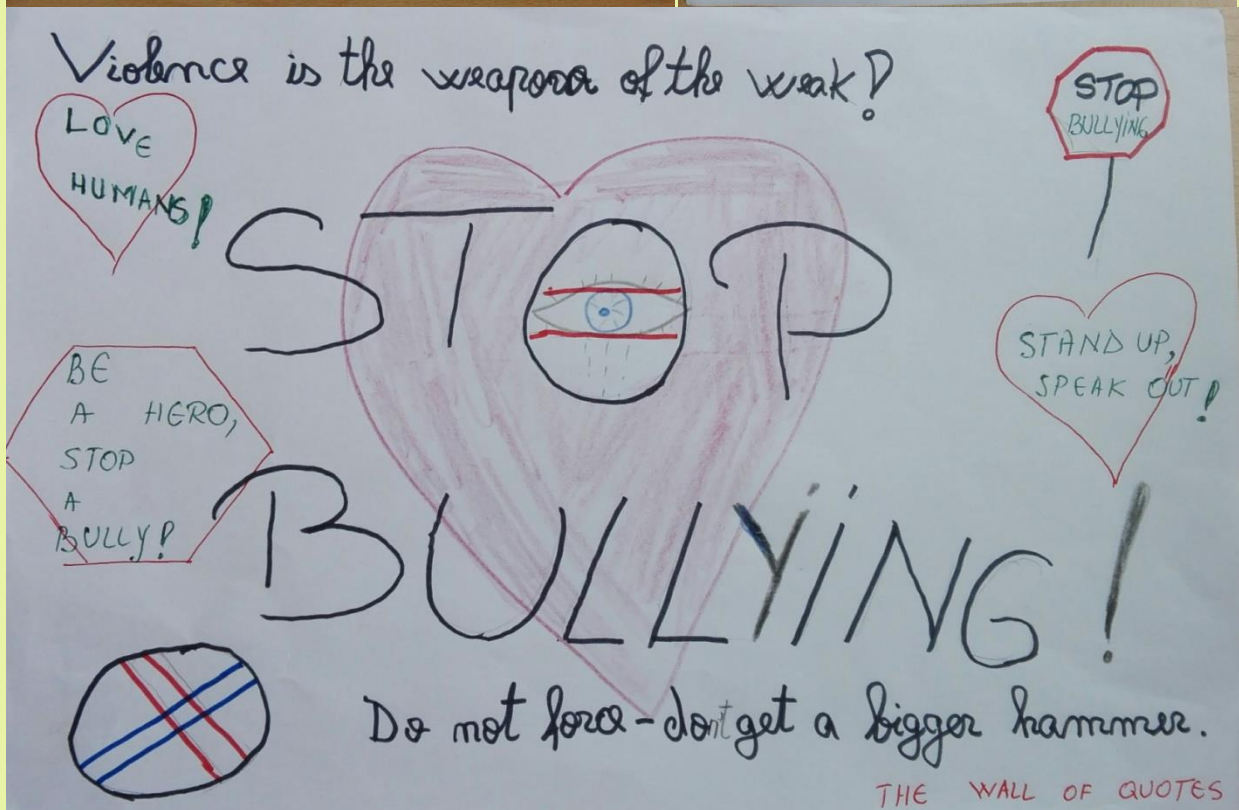 Violence is the weapon of the weak!
LOVE
HUMANS!
STOP
BULLYING
STOP
STAND UP,
SPEAK OUT!
BE
A HERO,
STOP
A
BULLY!
BULLYING!
Do not force-dont get a bigger hammer.
THE WALL OF QUOTES